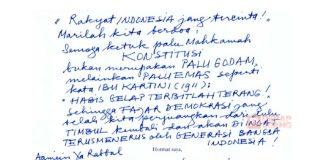 " Rakyat INDONESIA jang tercinta !
Marilah kita berdoa,
Semoga ketuk palu Mahkamah
KONSTITUSI
bukan merupakan PALU GODAM
melainkan PALU EMAS seperti
kata IBU KARTINI (1911):
"HABIS GELAP TERBITLAH TERANG!
Sehingga FAJAR DEMOKRASI jang
telah kita perjuangkan dari dulu
TIMBUL kembali dan akan DIINGAT
TERUS MENERUS oleh GENERASI BANGSA
INDONESIA !
Aamiin Ya Rabbal
Hormat saya,